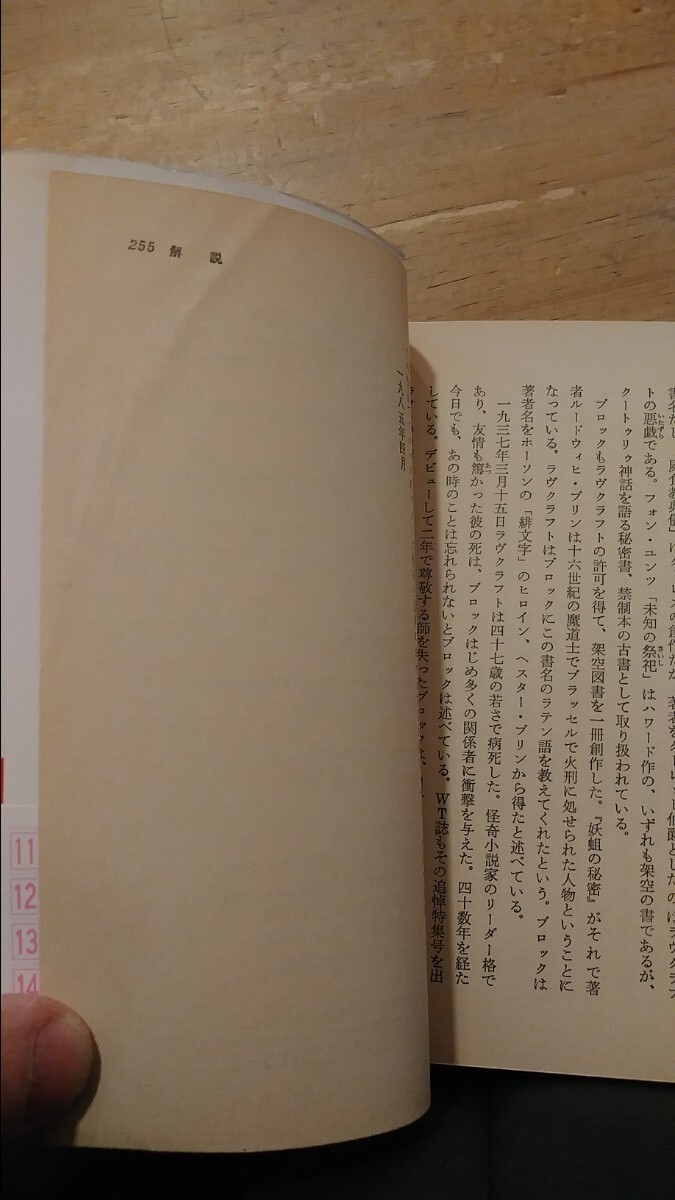 トの悪戯である。フォン・ユンツ「未知の祭祀」はハワード作の、いずれも架空の書であるが、
クートゥリゥ神話を語る秘密書、禁制本の古書として取り扱われている。
ブロックもラヴクラフトの許可を得て、架空図書を一冊創作した。『妖蛆の秘密』がそれで著
者ルードウィヒ・プリンは十六世紀の魔道士でブラッセルで火刑に処せられた人物ということに
なっている。ラヴクラフトはブロックにこの書名のラテン語を教えてくれたという。ブロックは
著者名をホーソンの「緋文字」のヒロイン、ヘスター・プリンから得たと述べている。
一九三七年三月十五日ラヴクラフトは四十七歳の若さで病死した。怪奇小説家のリーダー格で
あり、友情も篤かった彼の死は、ブロックはじめ多くの関係者に衝撃を与えた。四十数年を経た
今日でも、あの時のことは忘れられないとブロックは述べている。WT誌もその追悼特集号を出
している。デビューして二年で尊敬する師を失ったブロックは、
255 解 説
一九八五年四月
11
12
13
14